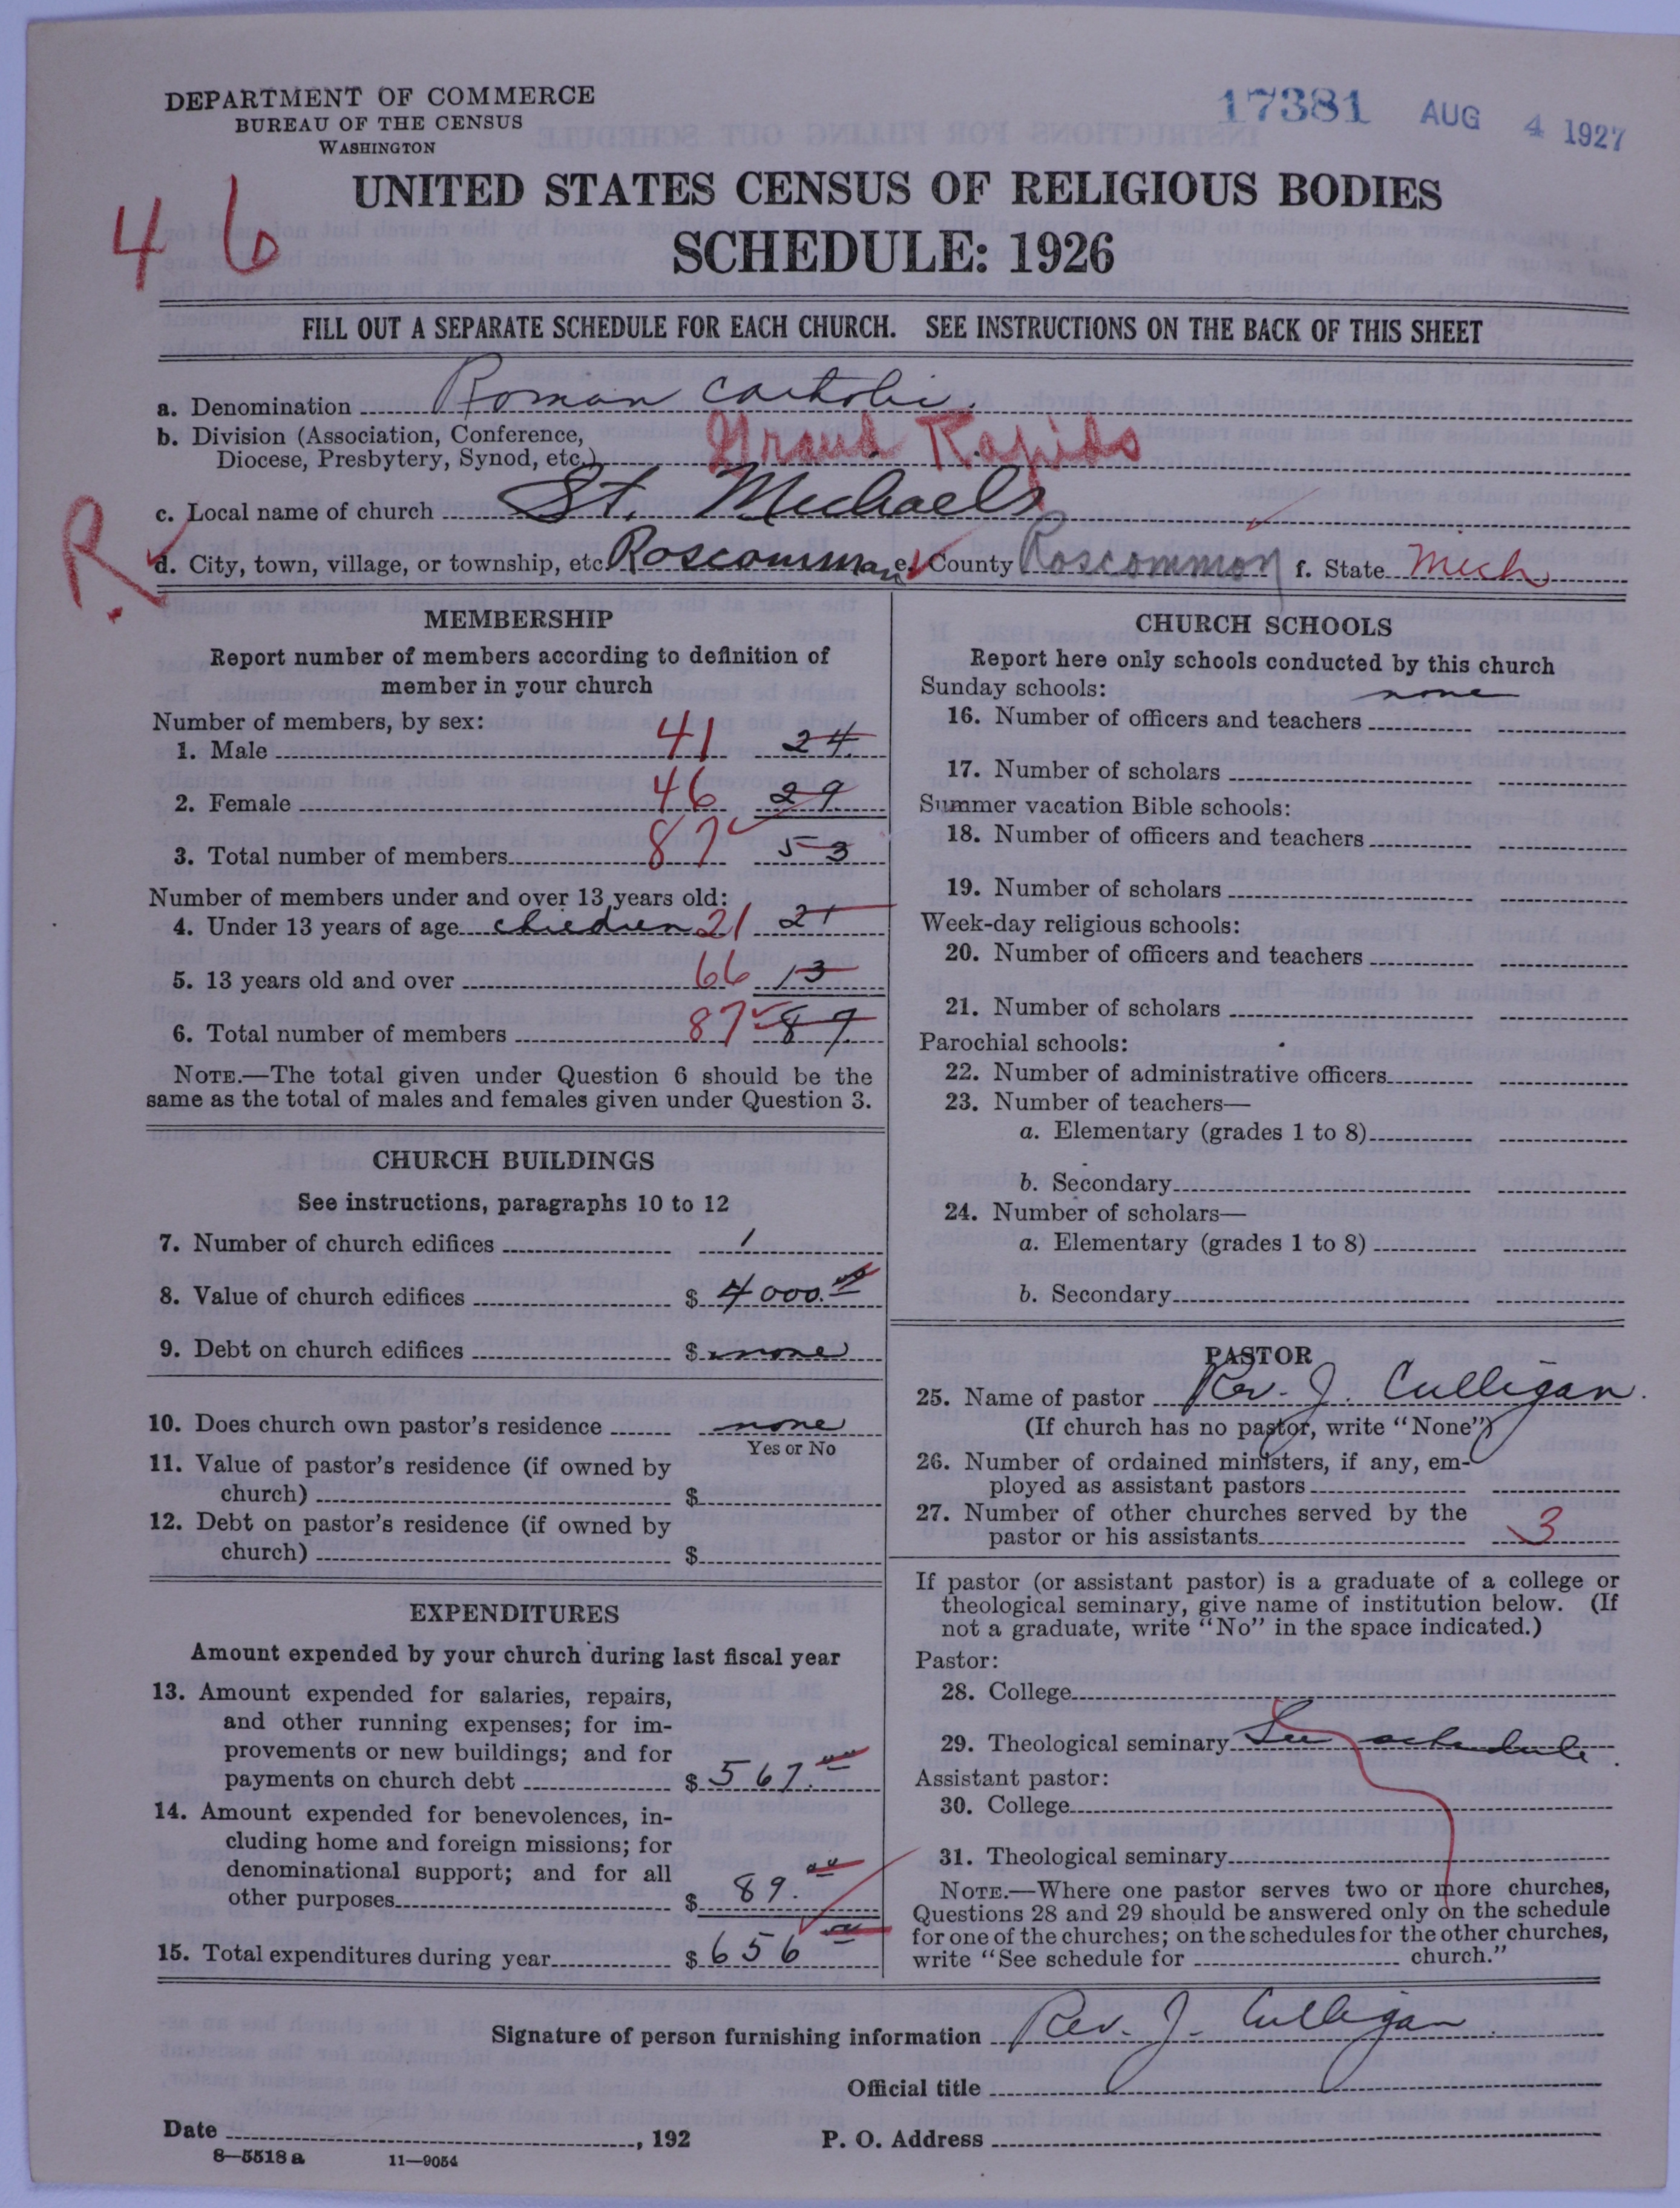 DEPARTMENT OF COMMERCE
BUREAU OF THE CENSUS
WASHINGTON
17381 AUG 4 1927
4 6
UNITED STATES CENSUS OF RELIGIOUS BODIES
SCHEDULE: 1926
FILL OUT A SEPARATE SCHEDULE FOR EACH CHURCH. SEE INSTRUCTIONS ON THE BACK OF THIS SHEET
a. Denomination Roman Catholic
b. Division (Association, Conference,
Diocese, Presbytery, Synod, etc.) Grand Rapids
c. Local name of church St. Michaels
R.
d. City, town, village, or township, etc. Roscomman e. County Roscommon f. State Mich
MEMBERSHIP
Report number of members according to definition of
member in your church
Number of members, by sex:
1. Male 41 24
2. Female 46 29
3. Total number of members 87 53
Number of members under and over 13 years old:
4. Under 13 years of age children 21 21
5. 13 years old and over 66 13
6. Total number of members 87 87
NOTE.—The total given under Question 6 should be the
same as the total of males and females given under Question 3.
CHURCH BUILDINGS
See instructions, paragraphs 10 to 12
7. Number of church edifices 1
8. Value of church edifices $ 4000.00
9. Debt on church edifices $ none
10. Does church own pastor's residence none
Yes or No
11. Value of pastor's residence (if owned by
church) $
12. Debt on pastor's residence (if owned by
church) $
EXPENDITURES
Amount expended by your church during last fiscal year
13. Amount expended for salaries, repairs,
and other running expenses; for im-
provements or new buildings; and for
payments on church debt $ 567.00
14. Amount expended for benevolences, in-
cluding home and foreign missions; for
denominational support; and for all
other purposes $ 89.00
15. Total expenditures during year $ 656 00
CHURCH SCHOOLS
Report here only schools conducted by this church
Sunday schools: none
16. Number of officers and teachers
17. Number of scholars
Summer vacation Bible schools:
18. Number of officers and teachers
19. Number of scholars
Week-day religious schools:
20. Number of officers and teachers
21. Number of scholars
Parochial schools:
22. Number of administrative officers
23. Number of teachers—
a. Elementary (grades 1 to 8)
b. Secondary
24. Number of scholars—
a. Elementary (grades 1 to 8)
b. Secondary
PASTOR
25. Name of pastor Rev. J. Culligan.
(If church has no pastor, write "None")
26. Number of ordained ministers, if any, em-
ployed as assistant pastors
27. Number of other churches served by the
pastor or his assistants 3
If pastor (or assistant pastor) is a graduate of a college or
theological seminary, give name of institution below. (If
not a graduate, write "No" in the space indicated.)
Pastor:
28. College
29. Theological seminary See schedule.
Assistant pastor:
30. College
31. Theological seminary
NOTE.—Where one pastor serves two or more churches,
Questions 28 and 29 should be answered only on the schedule
for one of the churches; on the schedules for the other churches,
write "See schedule for church."
Signature of person furnishing information Rev. J. Culligan
Official title
Date , 192 P. O. Address
8—5518 a 11—9054